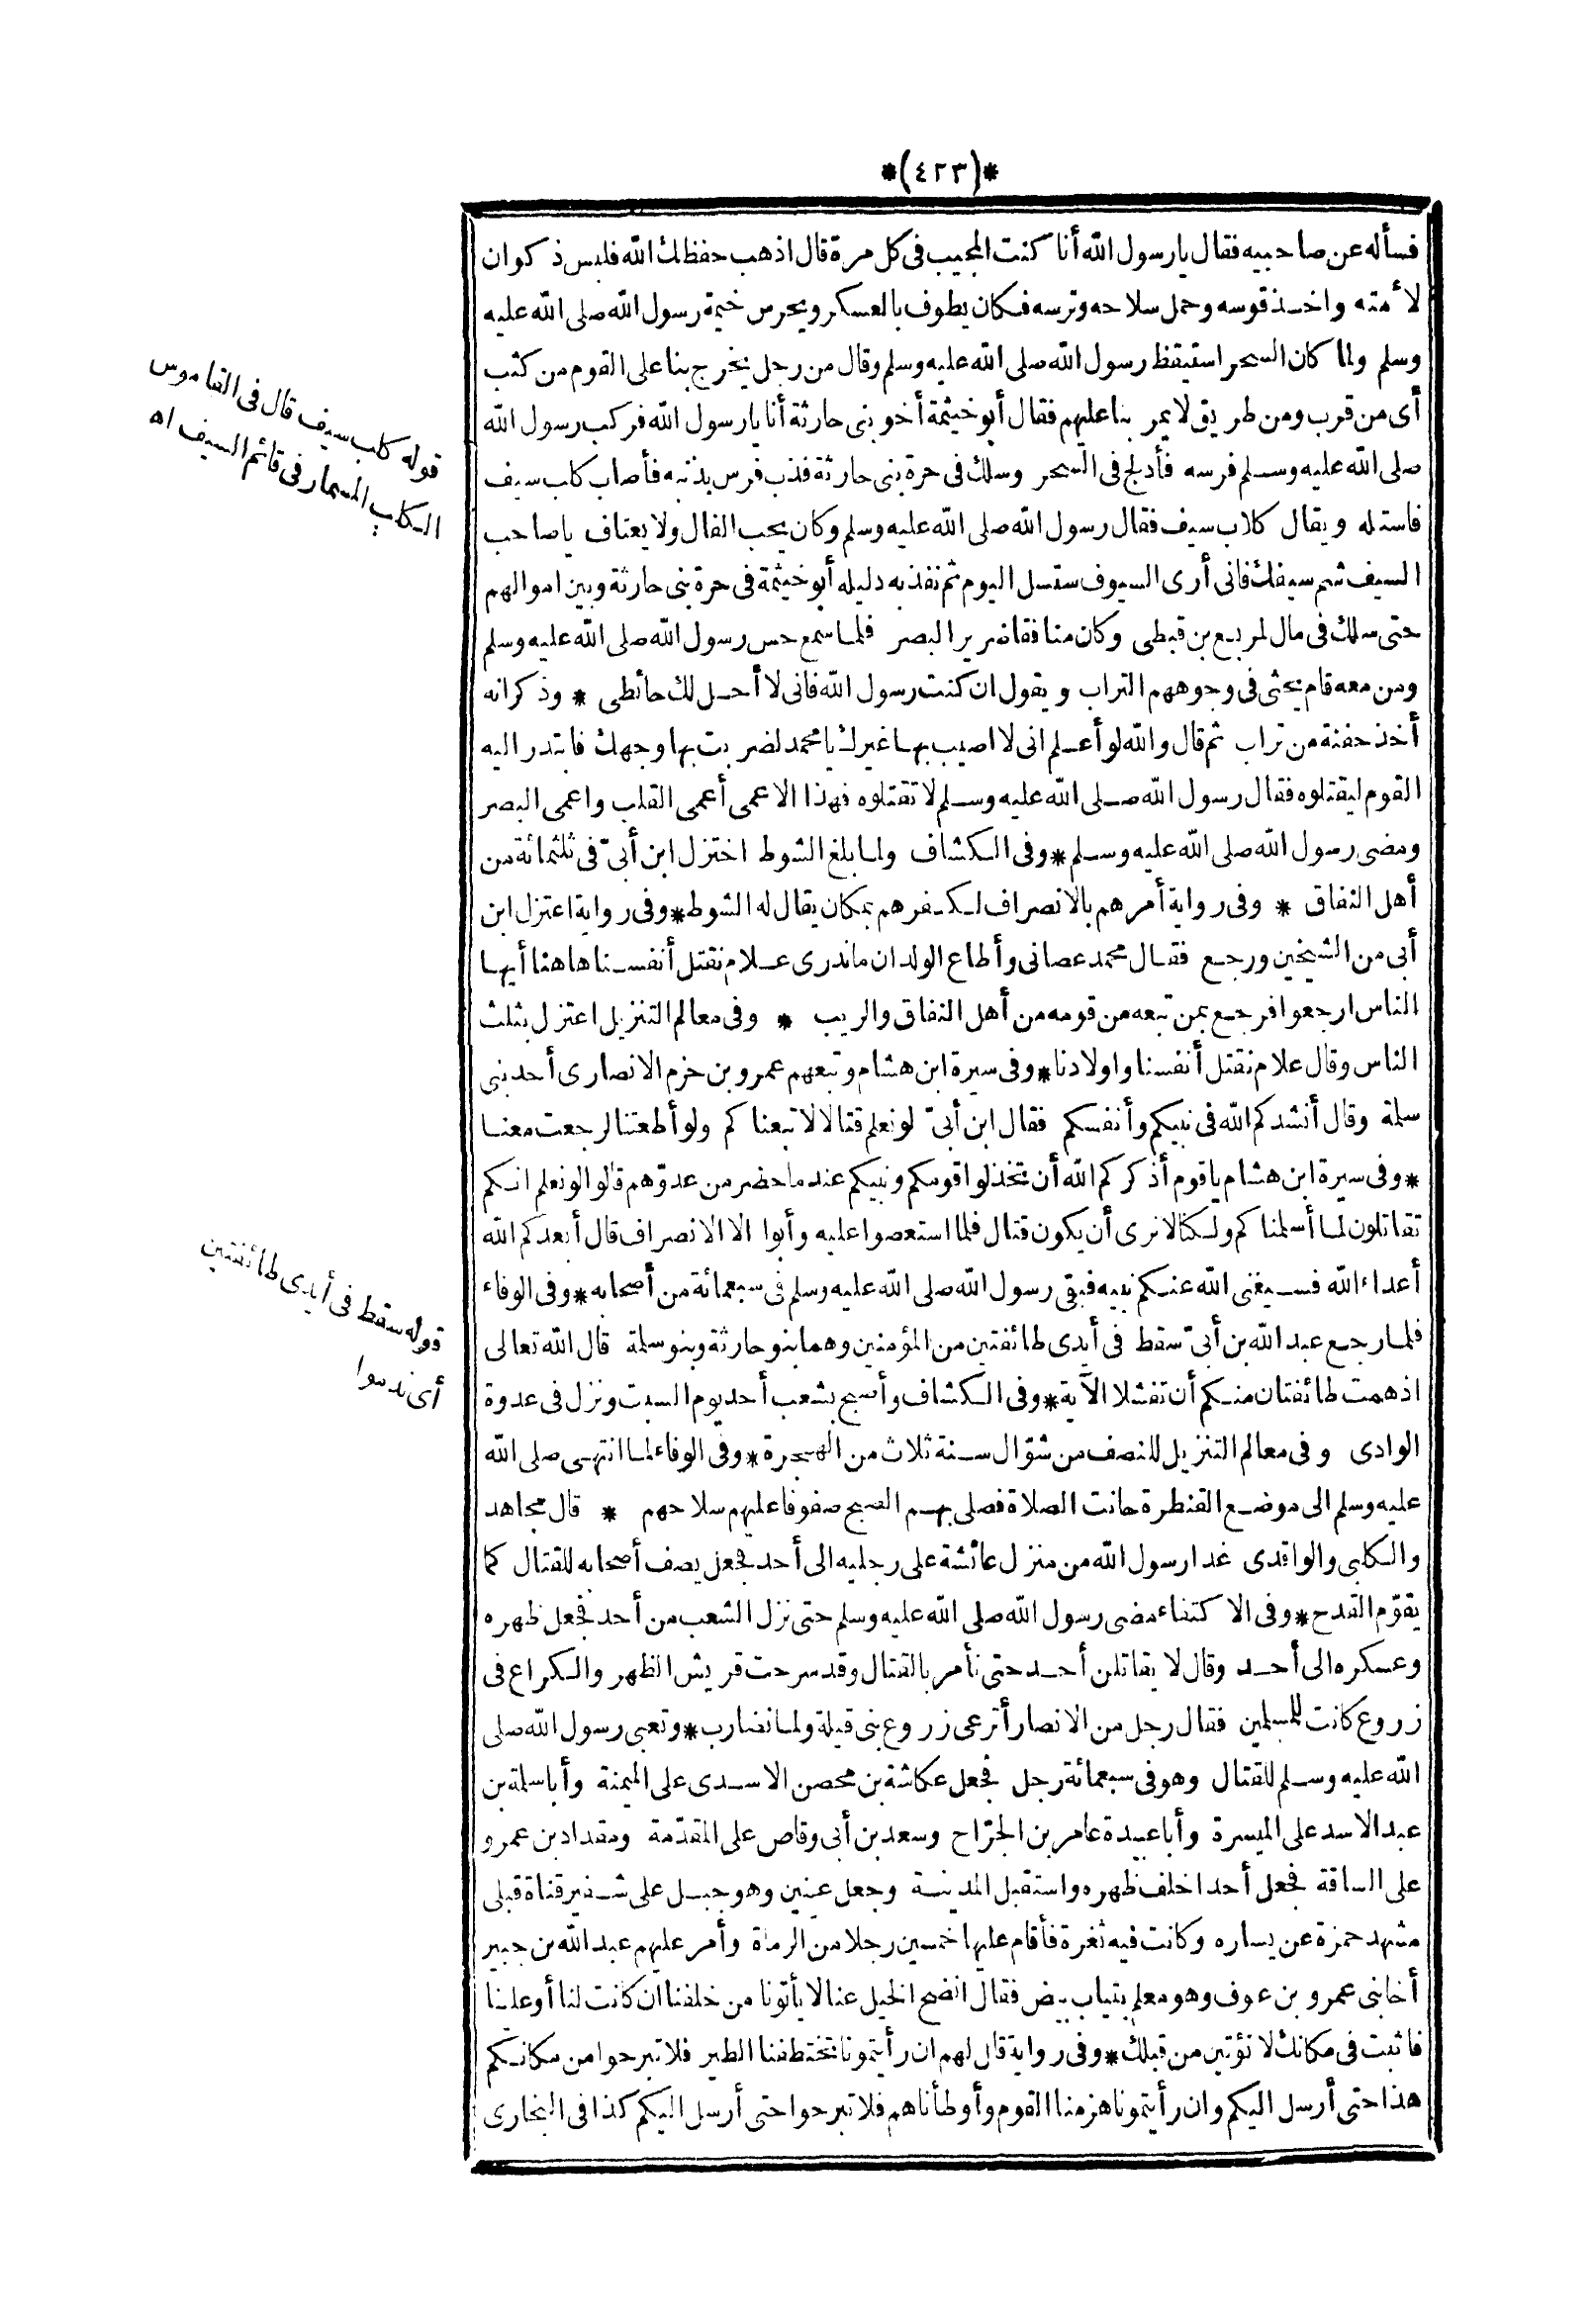 *(٤٢٣)*
فسأله عن صاحبيه فقال يا رسول الله أنا كنت المجيب فى كل مرة قال اذهب حفظك الله فلبس ذكوان
لأمته واخذ قوسه وحمل سلاحه وترسه فكان يطوف بالعسكر ويحرس خيمة رسول الله صلى الله عليه
وسلم ولما كان السحر استيقظ رسول الله صلى الله عليه وسلم وقال من رجل يخرج بنا على القوم من كثب
أى من قرب ومن طريق لا يمر بنا عليهم فقال أبو خيثمة أخو بنى حارثة أنا يا رسول الله فركب رسول الله
صلى الله عليه وسلم فرسه فأدلج فى السحر وسلك فى حرة بنى حارثة فذب فرس بذنبه فأصاب كلب سيف
فاستله ويقال كلاب سيف فقال رسول الله صلى الله عليه وسلم وكان يحب الفال ولا يعتاف يا صاحب
السيف شم سيفك فانى أرى السيوف ستسل اليوم ثم نفذ به دليله أبو خيثمة فى حرة بنى حارثة وبين اموالهم
حتى سلك فى مال لمربع بن قبطى وكان منافقا ضرير البصر فلما سمع حس رسول الله صلى الله عليه وسلم
ومن معه قام يحثى فى وجوههم التراب ويقول ان كنت رسول الله فانى لا أحل لك حائطى * وذكر انه
أخذ حفنة من تراب ثم قال والله لو أعلم انى لا اصيب بها غيرك يا محمد لضربت بها وجهك فابتدر اليه
القوم ليقتلوه فقال رسول الله صلى الله عليه وسلم لا تقتلوه فهذا الاعمى أعمى القلب واعمى البصر
ومضى رسول الله صلى الله عليه وسلم * وفى الكشاف ولما بلغ الشوط اختزل ابن أبىّ فى ثلثمائة من
أهل النفاق * وفى رواية أمرهم بالانصراف لكفرهم بمكان يقال له الشوط * وفى رواية اعتزل ابن
أبى من الشيخين ورجع فقال محمد عصانى وأطاع الولدان ما ندرى علام نقتل أنفسنا هاهنا أيها
الناس ارجعوا فرجع بمن تبعه من قومه من أهل النفاق والريب * وفى معالم التنزيل اعتزل بثلث
الناس وقال علام نقتل أنفسنا واولادنا * وفى سيرة ابن هشام وتبعهم عمرو بن حزم الانصارى أحد بنى
سلمة وقال أنشدكم الله فى نبيكم وأنفسكم فقال ابن أبىّ لو نعلم قتالا لاتبعناكم ولو أطعتنا لرجعت معنا
* وفى سيرة ابن هشام يا قوم أذكركم الله أن تخذلوا قومكم ونبيكم عند ما حضر من عدوّهم قالوا لو نعلم انكم
تقاتلون لما أسلمناكم ولكنا لا نرى أن يكون قتال فلما استعصوا عليه وأبوا الا الانصراف قال أبعدكم الله
أعداء الله فسيغنى الله عنكم نبيه فبقى رسول الله صلى الله عليه وسلم فى سبعمائة من أصحابه * وفى الوفاء
فلما رجع عبد الله بن أبىّ سقط فى أيدى طائفتين من المؤمنين وهما بنو حارثة وبنو سلمة قال الله تعالى
اذ همت طائفتان منكم أن تفشلا الآية * وفى الكشاف وأصبح بشعب أحد يوم السبت ونزل فى عدوة
الوادى وفى معالم التنزيل للنصف من شوّال سنة ثلاث من الهجرة * وفى الوفاء لما انتهى صلى الله
عليه وسلم الى موضع القنطرة حانت الصلاة فصلى بهم الصبح صفوفا عليهم سلاحهم * قال مجاهد
والكلبى والواقدى غدا رسول الله من منزل عائشة على رجليه الى أحد فجعل يصف أصحابه للقتال كما
يقوّم القدح * وفى الاكتفاء مضى رسول الله صلى الله عليه وسلم حتى نزل الشعب من أحد فجعل ظهره
وعسكره الى أحد وقال لا يقاتلن أحد حتى نأمر بالقتال وقد سرحت قريش الظهر والكراع فى
زروع كانت للمسلمين فقال رجل من الانصار أترعى زروع بنى قيلة ولما نضارب * وتعبى رسول الله صلى
الله عليه وسلم للقتال وهو فى سبعمائة رجل فجعل عكاشة بن محصن الاسدى على الميمنة وأبا سلمة بن
عبد الاسد على الميسرة وأبا عبيدة عامر بن الجرّاح وسعد بن أبى وقاص على المقدّمة ومقداد بن عمرو
على الساقة فجعل أحدا خلف ظهره واستقبل المدينة وجعل عينين وهو جبل على شفير قناة قبلى
مشهد حمزة عن يساره وكانت فيه ثغرة فأقام عليها خمسين رجلا من الرماة وأمر عليهم عبد الله بن جبير
أخا بنى عمرو بن عوف وهو معلم بثياب بيض فقال انضح الخيل عنا لا يأتونا من خلفنا ان كانت لنا أو علينا
فاثبت فى مكانك لا نؤتين من قبلك * وفى رواية قال لهم ان رأيتمونا تختطفنا الطير فلا تبرحوا من مكانكم
هذا حتى أرسل اليكم وان رأيتمونا هزمنا القوم وأوطأناهم فلا تبرحوا حتى أرسل اليكم كذا فى البخارى
قوله كلب سيف قال فى القاموس
الكلب المسمار فى قائم السيف اه
قوله سقط فى أيدى طائفتين
أى ندموا